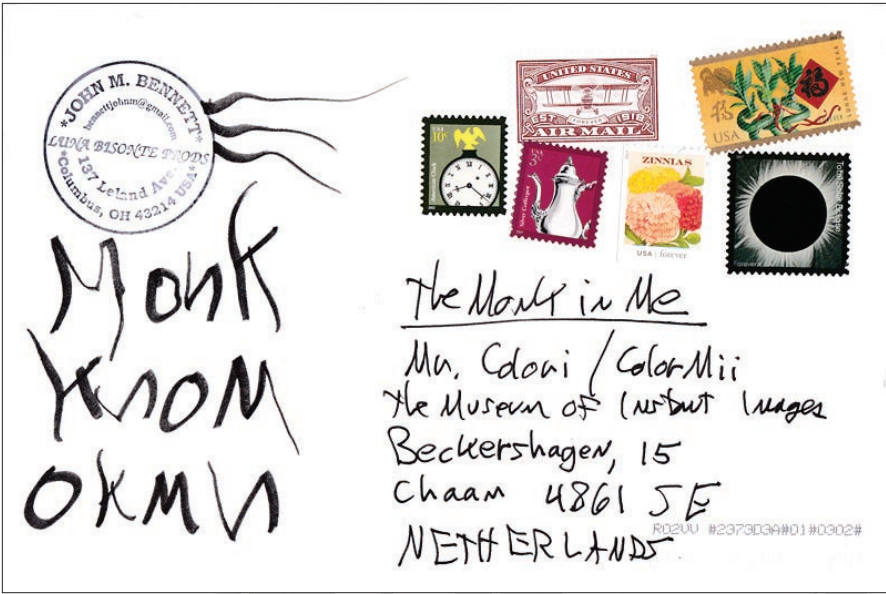 *JOHN M. BENNETT*
bennettjohnm@gmail.com
LUNA BISONTE PRODS
137 Leland Ave.
*Columbus, OH 43214 USA*
UNITED STATES
EST. 1918
FOREVER
AIR MAIL
LUNAR NEW YEAR
福
USA
USA
10c
American Clock
USA
3c
Silver Coffeepot
ZINNIAS
USA | forever
Forever
Monk
Knom
okmn
The Monk in Me
Mr. Colori / ColorMii
The Museum of Instant Images
Beckershagen, 15
Chaam 4861 SE
NETHERLANDS
R02VV #2373D3A#01#0302#